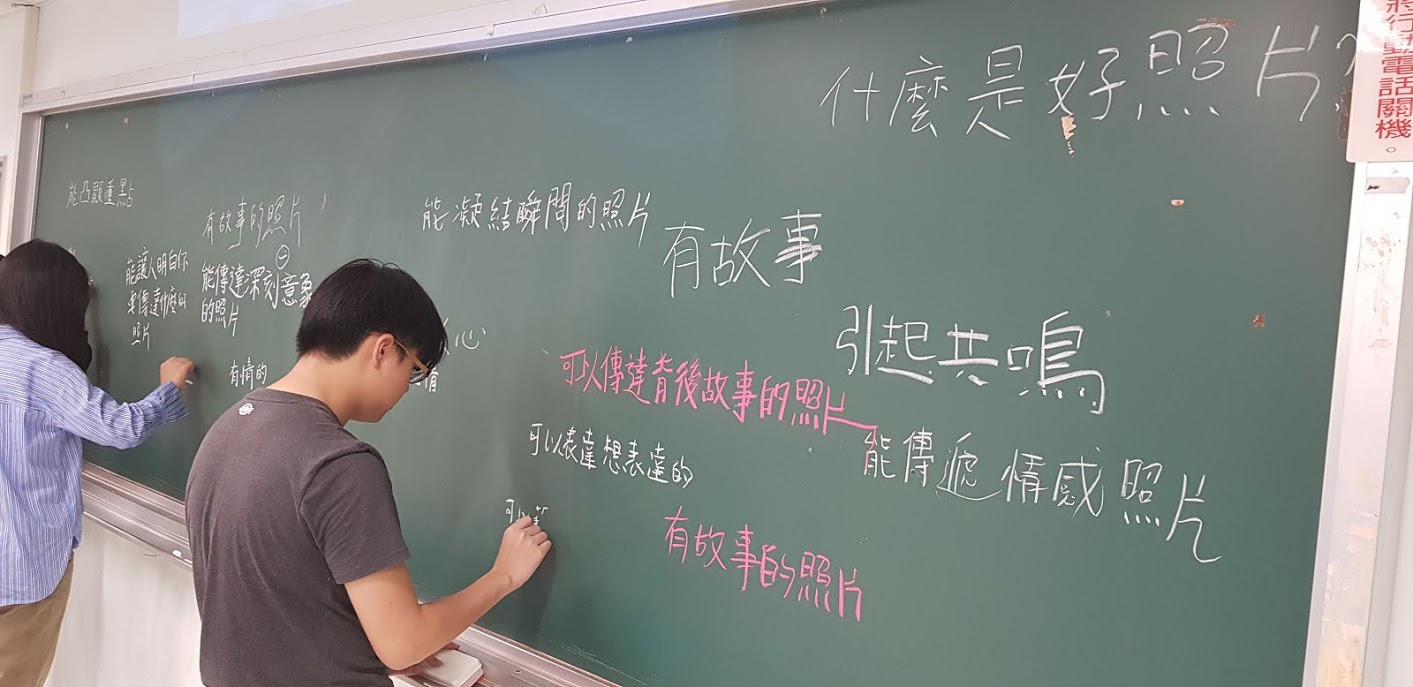 什麼是好照片?
將行動電話關機
能凸顯重點
有故事的照片
能凝結瞬間的照片
有故事
能讓人明白你
要傳達什麼的
照片
能傳達深刻意象
的照片
心
有情的
引起共鳴
可以傳達背後故事的照片
可以表達想表達的
能傳遞情感照片
可以
有故事的照片